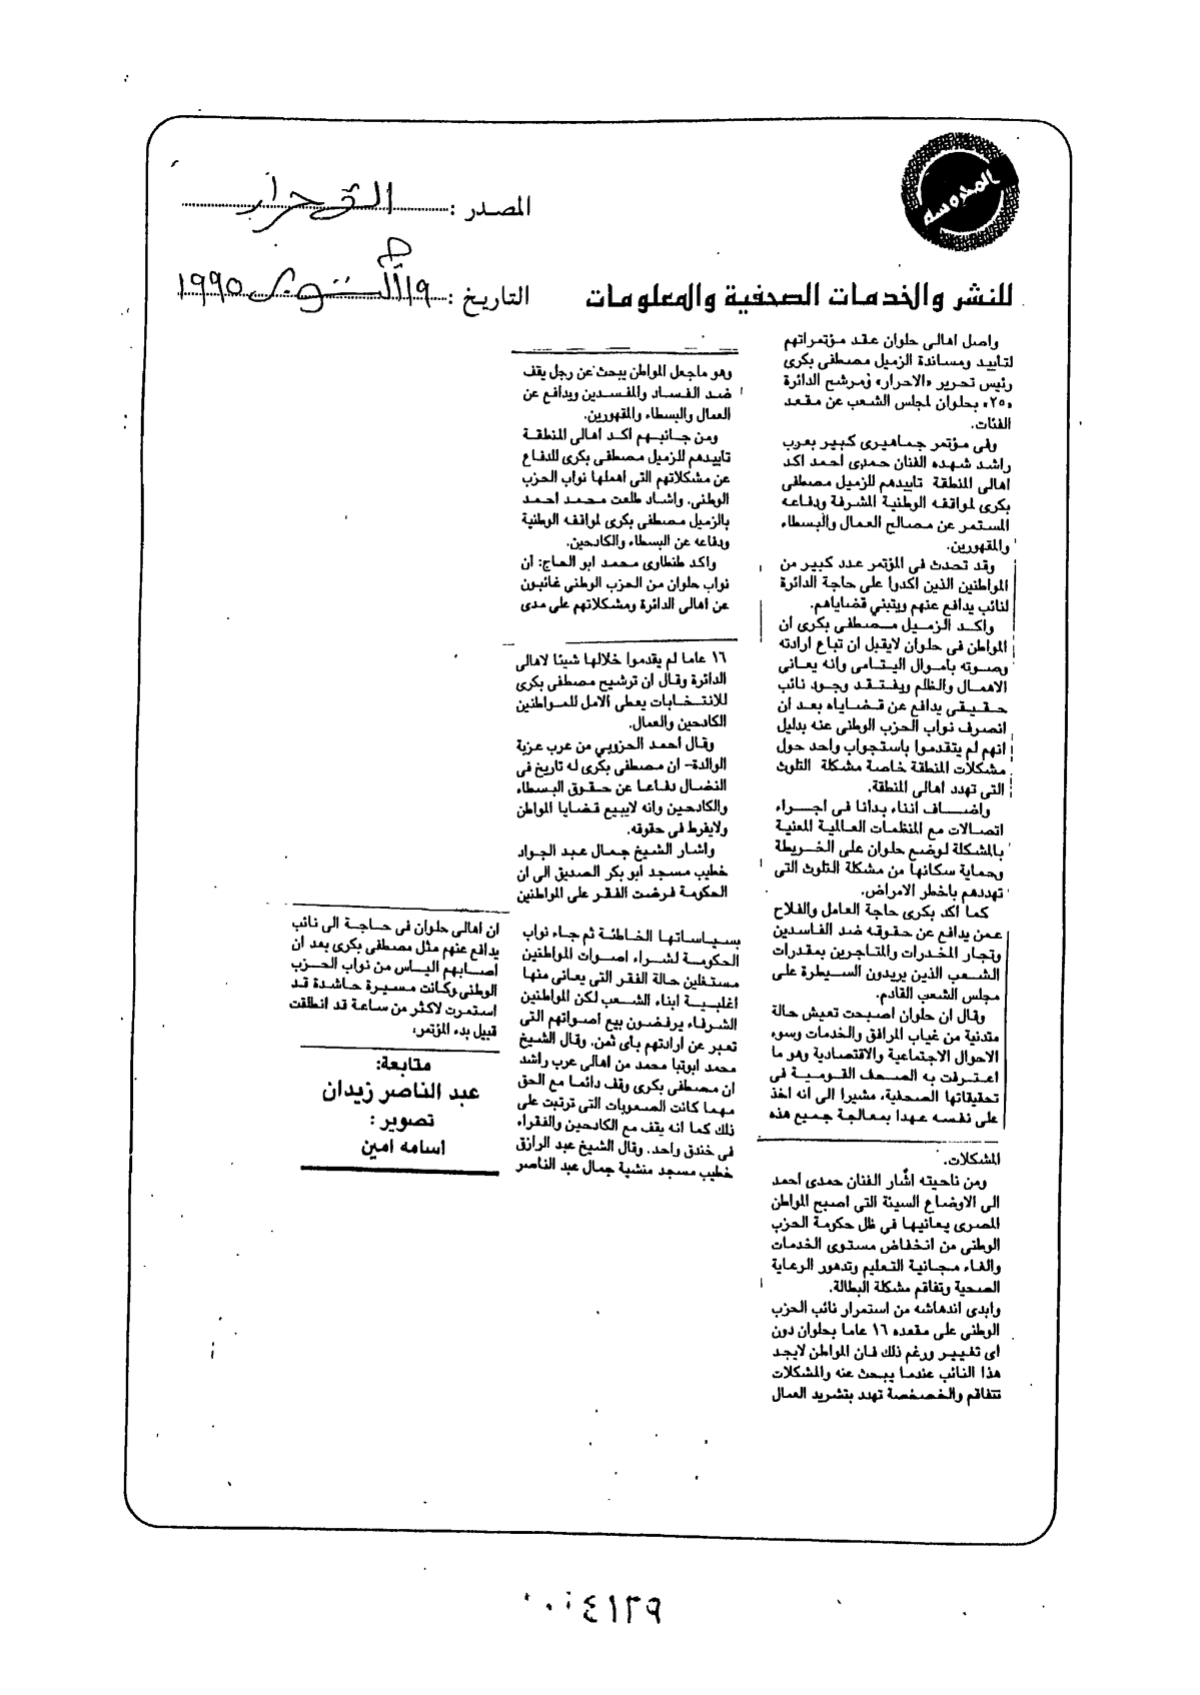 المحروسة
المصدر : الأحرار
التاريخ : ١٩ أكتوبر ١٩٩٥
للنشر والخدمات الصحفية والمعلومات
واصل اهالى حلوان عقد مؤتمراتهم
لتاييد ومساندة الزميل مصطفى بكرى
رئيس تحرير «الاحرار» ومرشح الدائرة
«٢٥» بحلوان لمجلس الشعب عن مقعد
الفئات.
وفى مؤتمر جماهيرى كبير بعرب
راشد شهده الفنان حمدى احمد اكد
اهالى المنطقة تاييدهم للزميل مصطفى
بكرى لمواقفه الوطنية المشرفة ودفاعه
المستمر عن مصالح العمال والبسطاء
والمقهورين.
وقد تحدث فى المؤتمر عدد كبير من
المواطنين الذين اكدوا على حاجة الدائرة
لنائب يدافع عنهم ويتبني قضاياهم.
واكد الزميل مصطفى بكرى ان
المواطن فى حلوان لايقبل ان تباع ارادته
وصوته باموال اليتامى وانه يعانى
الاهمال والظلم ويفتقد وجود نائب
حقيقى يدافع عن قضاياه بعد ان
انصرف نواب الحزب الوطنى عنه بدليل
انهم لم يتقدموا باستجواب واحد حول
مشكلات المنطقة خاصة مشكلة التلوث
التى تهدد اهالى المنطقة.
واضاف اننا بدانا فى اجراء
اتصالات مع المنظمات العالمية المعنية
بالمشكلة لوضع حلوان على الخريطة
وحماية سكانها من مشكلة التلوث التى
تهددهم باخطر الامراض.
كما اكد بكرى حاجة العامل والفلاح
عمن يدافع عن حقوقه ضد الفاسدين
وتجار المخدرات والمتاجرين بمقدرات
الشعب الذين يريدون السيطرة على
مجلس الشعب القادم.
وقال ان حلوان اصبحت تعيش حالة
متدنية من غياب المرافق والخدمات وسوء
الاحوال الاجتماعية والاقتصادية وهو ما
اعترفت به الصحف القومية فى
تحقيقاتها الصحفية، مشيرا الى انه اخذ
على نفسه عهدا بمعالجة جميع هذه
المشكلات.
ومن ناحيته اشار الفنان حمدى احمد
الى الاوضاع السيئة التى اصبح المواطن
المصرى يعانيها فى ظل حكومة الحزب
الوطنى من انخفاض مستوى الخدمات
والغاء مجانية التعليم وتدهور الرعاية
الصحية وتفاقم مشكلة البطالة.
وابدى اندهاشه من استمرار نائب الحزب
الوطنى على مقعده ١٦ عاما بحلوان دون
اى تغيير ورغم ذلك فان المواطن لايجد
هذا النائب عندما يبحث عنه والمشكلات
تتفاقم والخصخصة تهدد بتشريد العمال
وهو ماجعل المواطن يبحث عن رجل يقف
ضد الفساد والمفسدين ويدافع عن
العمال والبسطاء والمقهورين.
ومن جانبهم اكد اهالى المنطقة
تاييدهم للزميل مصطفى بكرى للدفاع
عن مشكلاتهم التى اهملها نواب الحزب
الوطنى. واشاد طلعت محمد احمد
بالزميل مصطفى بكرى لمواقفه الوطنية
ودفاعه عن البسطاء والكادحين.
واكد طنطاوى محمد ابو الحاج: ان
نواب حلوان من الحزب الوطنى غائبون
عن اهالى الدائرة ومشكلاتهم على مدى
١٦ عاما لم يقدموا خلالها شيئا لاهالى
الدائرة وقال ان ترشيح مصطفى بكرى
للانتخابات يعطى الامل للمواطنين
الكادحين والعمال.
وقال احمد الحزوبي من عرب عزبة
الوالدة- ان مصطفى بكرى له تاريخ فى
النضال دفاعا عن حقوق البسطاء
والكادحين وانه لايبيع قضايا المواطن
ولايفرط فى حقوقه.
واشار الشيخ جمال عبد الجواد
خطيب مسجد ابو بكر الصديق الى ان
الحكومة فرضت الفقر على المواطنين
بسياساتها الخاطئة ثم جاء نواب
الحكومة لشراء اصوات المواطنين
مستغلين حالة الفقر التى يعانى منها
اغلبية ابناء الشعب لكن المواطنين
الشرفاء يرفضون بيع اصواتهم التى
تعبر عن ارادتهم باى ثمن. وقال الشيخ
محمد ابوتبا محمد من اهالى عرب راشد
ان مصطفى بكرى وقف دائما مع الحق
مهما كانت الصعوبات التى ترتبت على
ذلك كما انه يقف مع الكادحين والفقراء
فى خندق واحد. وقال الشيخ عبد الرازق
خطيب مسجد منشية جمال عبد الناصر
ان اهالى حلوان فى حاجة الى نائب
يدافع عنهم مثل مصطفى بكرى بعد ان
اصابهم الياس من نواب الحزب
الوطنى وكانت مسيرة حاشدة قد
استمرت لاكثر من ساعة قد انطلقت
قبيل بدء المؤتمر.
متابعة:
عبد الناصر زيدان
تصوير :
اسامه امين
٠٠٤١٢٩